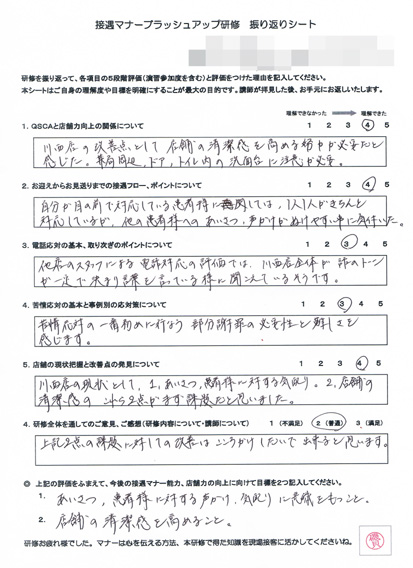 接遇マナーブラッシュアップ研修 振り返りシート
研修を振り返って、各項目の5段階評価(演習参加度を含む)と評価をつけた理由を記入してください。
本シートはご自身の理解度や目標を明確にすることが最大の目的です。講師が拝見した後、お手元にお返しいたします。
理解できなかった 理解できた
1. QSCAと店舗力向上の関係について 1 2 3 4 5
川西店の改善点として店舗の清潔感を高める努力が必要だと
感じた。薬局周辺、ドア、トイレ内の洗面台に注意が必要。
2. お迎えからお見送りまでの接遇フロー、ポイントについて 1 2 3 4 5
自分が目の前で対応している患者様に関しては、1人1人がきちんと
対応しているが、他の患者様へのあいさつ、声かけがぬけやすい事に気付いた。
3. 電話応対の基本、取り次ぎのポイントについて 1 2 3 4 5
他店のスタッフによる電話対応の評価では、川西店全体が話のトーン
が一定で決まり言葉を言っている様に聞こえているそうです。
4. 苦情応対の基本と事例別の応対策について 1 2 3 4 5
苦情応対の一番初めに行なう部分謝罪の必要性と難しさを
感じます。
5. 店舗の現状把握と改善点の発見について 1 2 3 4 5
川西店の現状として、1.あいさつ、患者様に対する気配り。2.店舗の
清潔感の これら2点がまず課題だと思いました。
4. 研修全体を通してのご意見、ご感想(研修内容について・講師について) 1(不満足) 2(普通) 3(満足)
上記2点の課題に対しての改善は心がけしだいで出来ると思います。
◎ 上記の評価をふまえて、今後の接遇マナー能力、店舗力の向上に向けて目標を2つ記入してください。
1. あいさつ、患者様に対する声かけ、気配りに意識をもつこと。
2. 店舗の清潔感を高めること。
研修お疲れ様でした。マナーは心を伝える方法、本研修で得た知識を現場接客に活かしてくださいね。